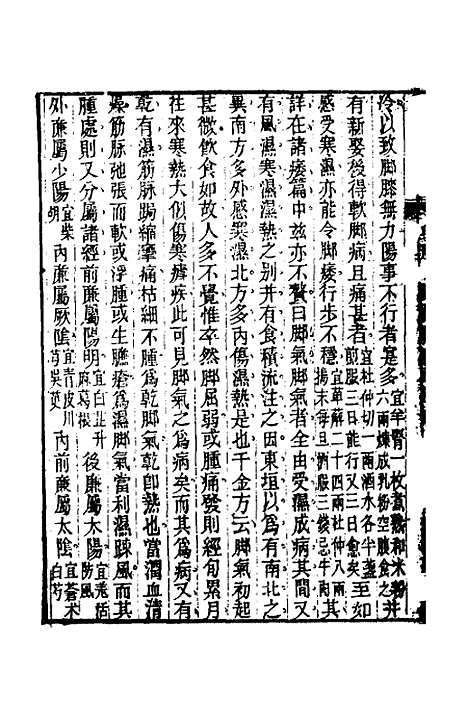 冷以致脚膝無力陽事不行者是多宜羊腎一枚煮熟和米粉六兩煉成乳粉空腹食之并
有新娶後得軟脚病且痛甚者宜杜仲切一兩酒水各半盞煎服三日能行又三日愈矣至如
感受寒濕亦能令脚痿行步不穩宜萆薢二十四兩杜仲八兩搗末每旦酒服三錢忌牛肉其
詳在諸痿篇中茲亦不贅曰脚氣者全由受濕成病其間又
有風濕寒濕濕熱之別并有食積流注之因東垣以為有南北之
異南方多外感寒濕北方多內傷濕熱也千金方云脚氣初起
甚微飲食如故人多不覺惟卒然脚屈弱或腫痛發則經旬累月
往來寒熱大似傷寒瘴疾此可見脚氣之為病矣而其為病又有
乾有濕筋脉踡縮攣痛枯細不腫為乾脚氣乾即熱也當潤血清
燥筋脉弛張而軟或浮腫或生臁瘡為濕脚氣當利濕疎風而其
腫處則又分屬諸經前廉屬陽明宜白芷升麻葛根後廉屬太陽宜羌活防風
外廉屬少陽宜柴胡內廉屬厥陰宜青皮川芎吳萸內前廉屬太陰宜蒼朮白芍